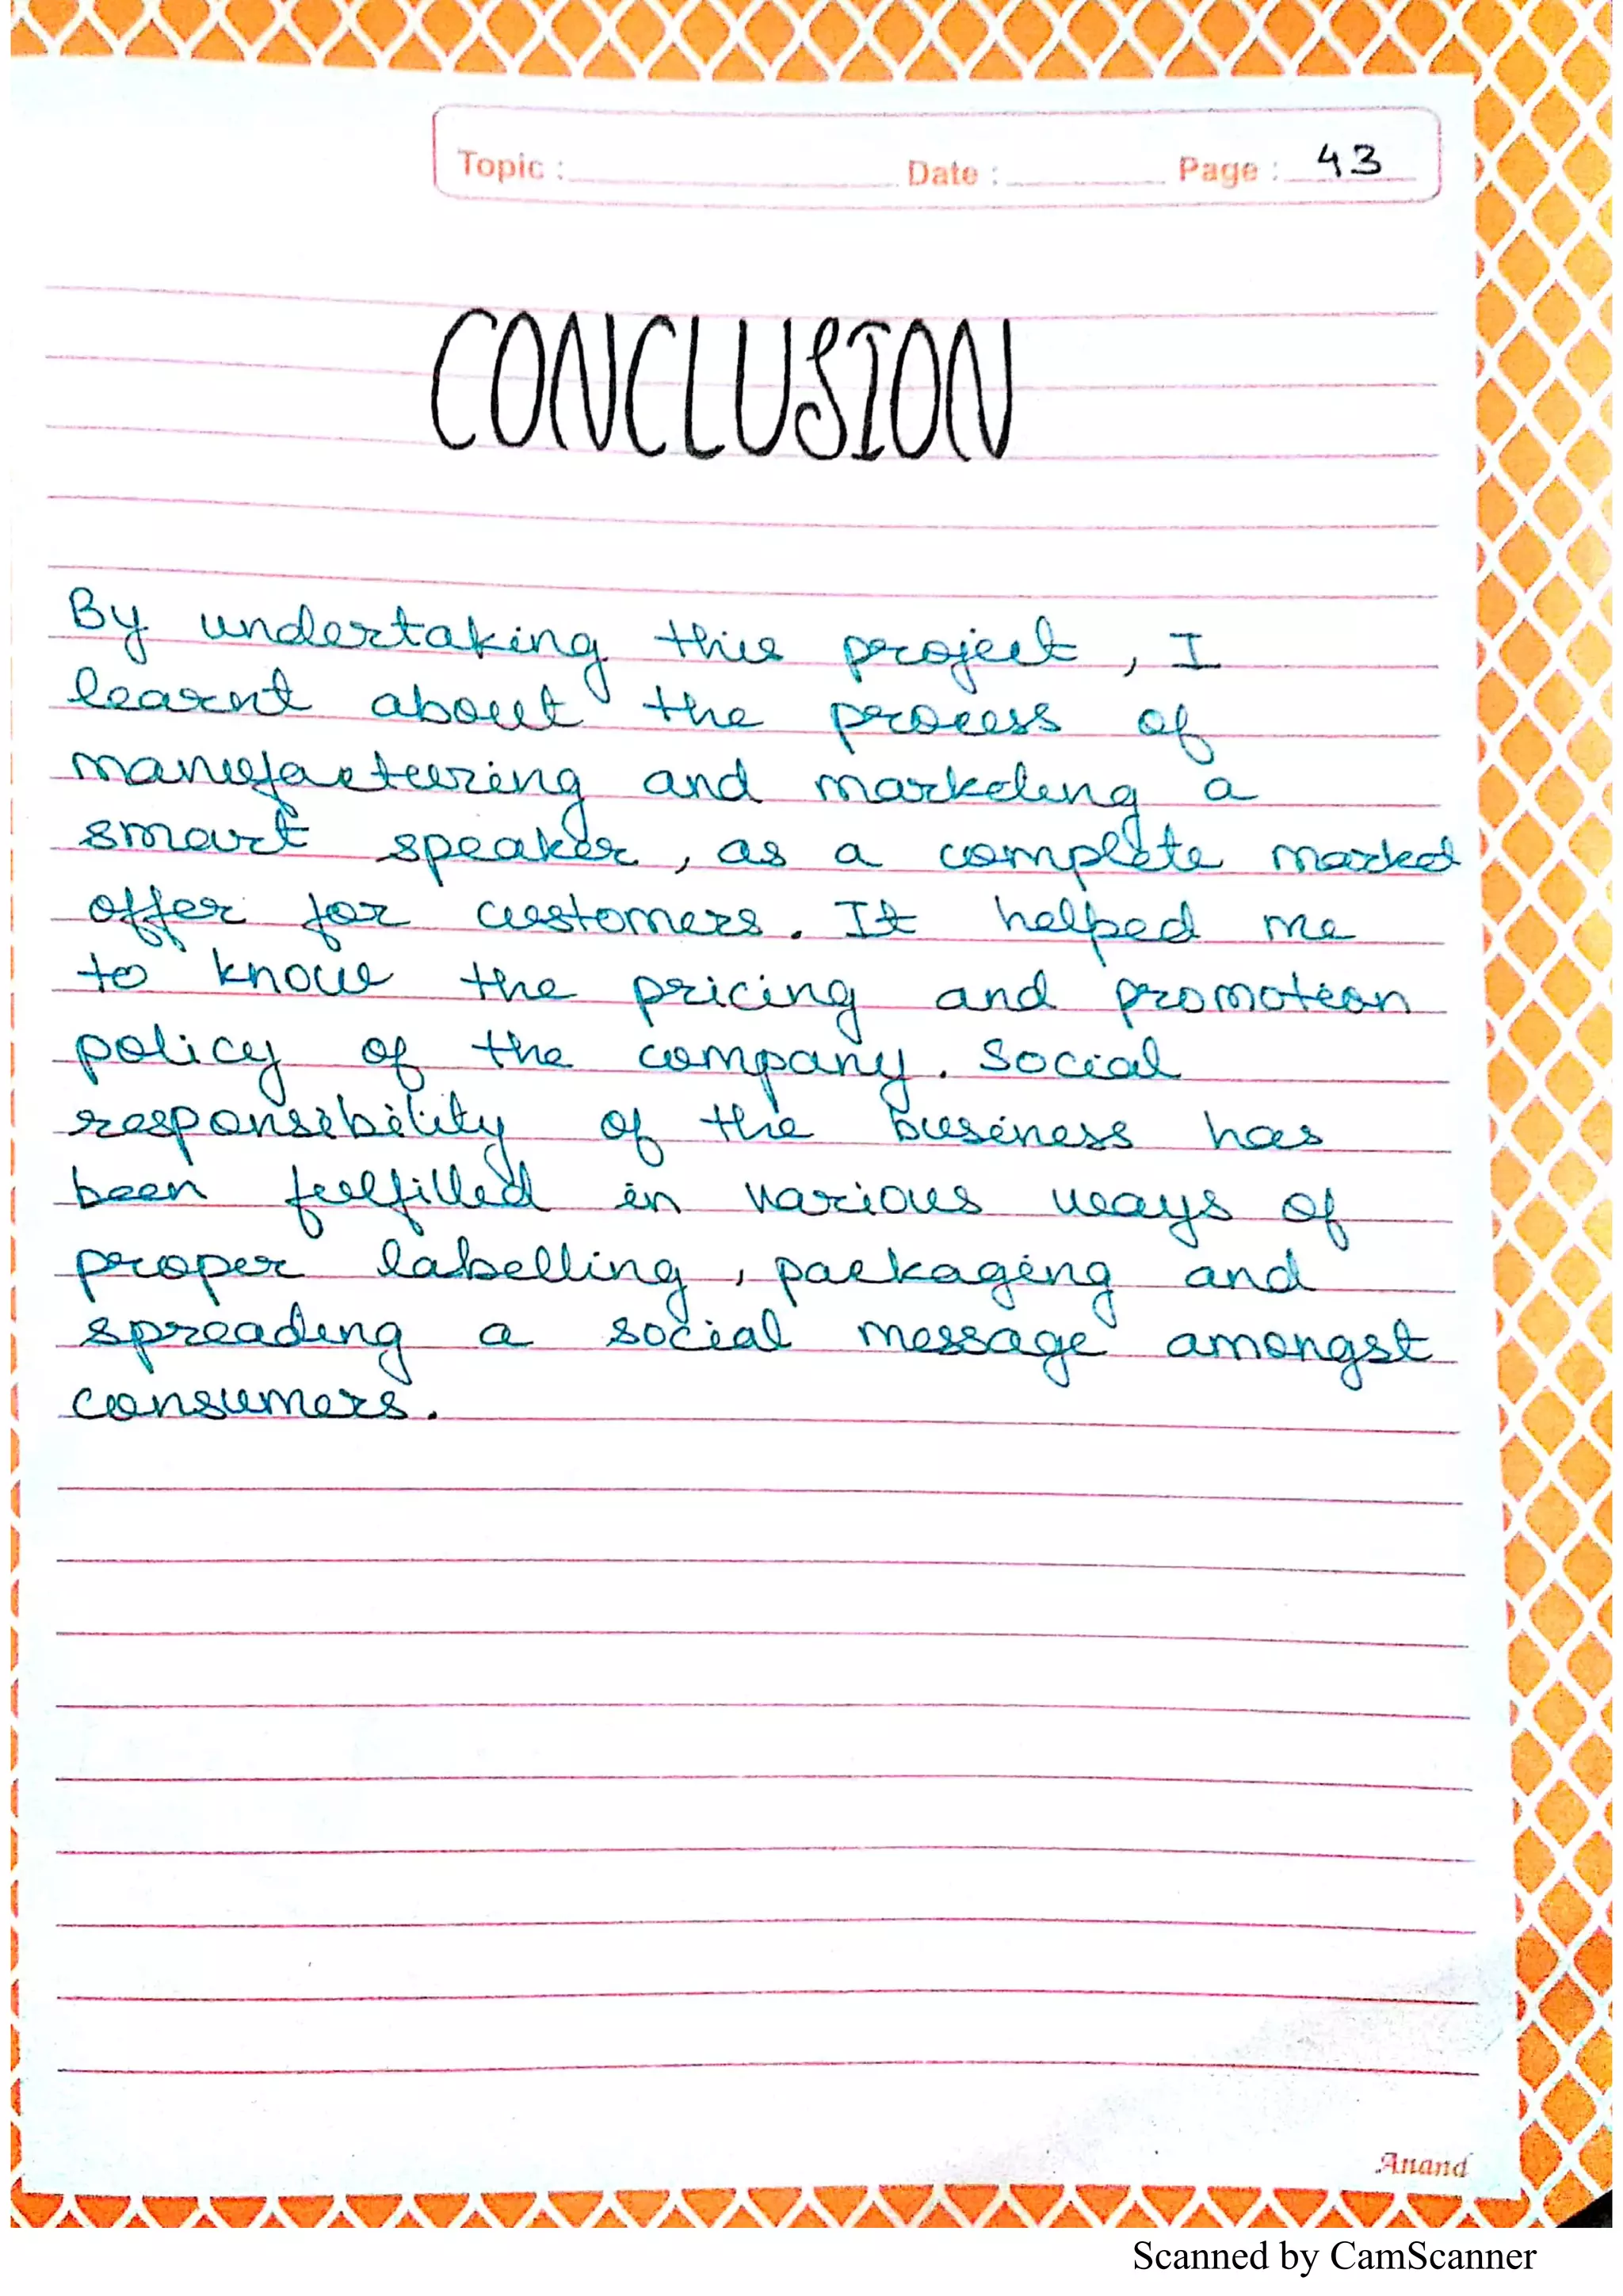 Topic : Date : Page : 43
CONCLUSION
By undertaking this project, I
learnt about the process of
manufacturing and marketing a
smart speaker, as a complete market
offer for customers. It helped me
to know the pricing and promotion
policy of the company. Social
responsibility of the business has
been fulfilled in various ways of
proper labelling, packaging and
spreading a social message amongst
consumers.
Anand
Scanned by CamScanner